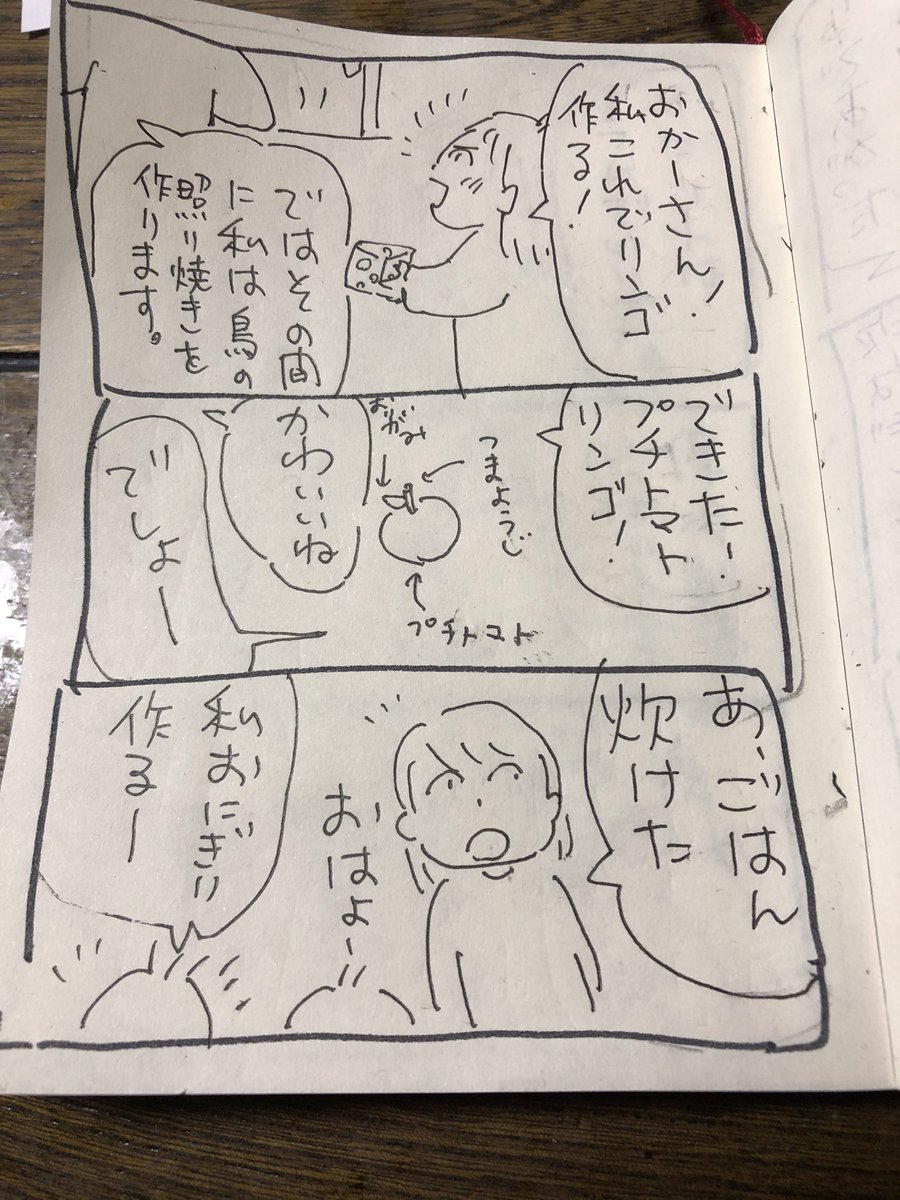 おかーさん!
私これでリンゴ
作る!
ではその間
に私は鳥の
照り焼きを
作ります。
できた!
プチトマト
リンゴ!
つまようじ
おがみ
プチトマト
かわいいね
でしょー
あ、ごはん
炊けた
おはよー
私おにぎり
作るー